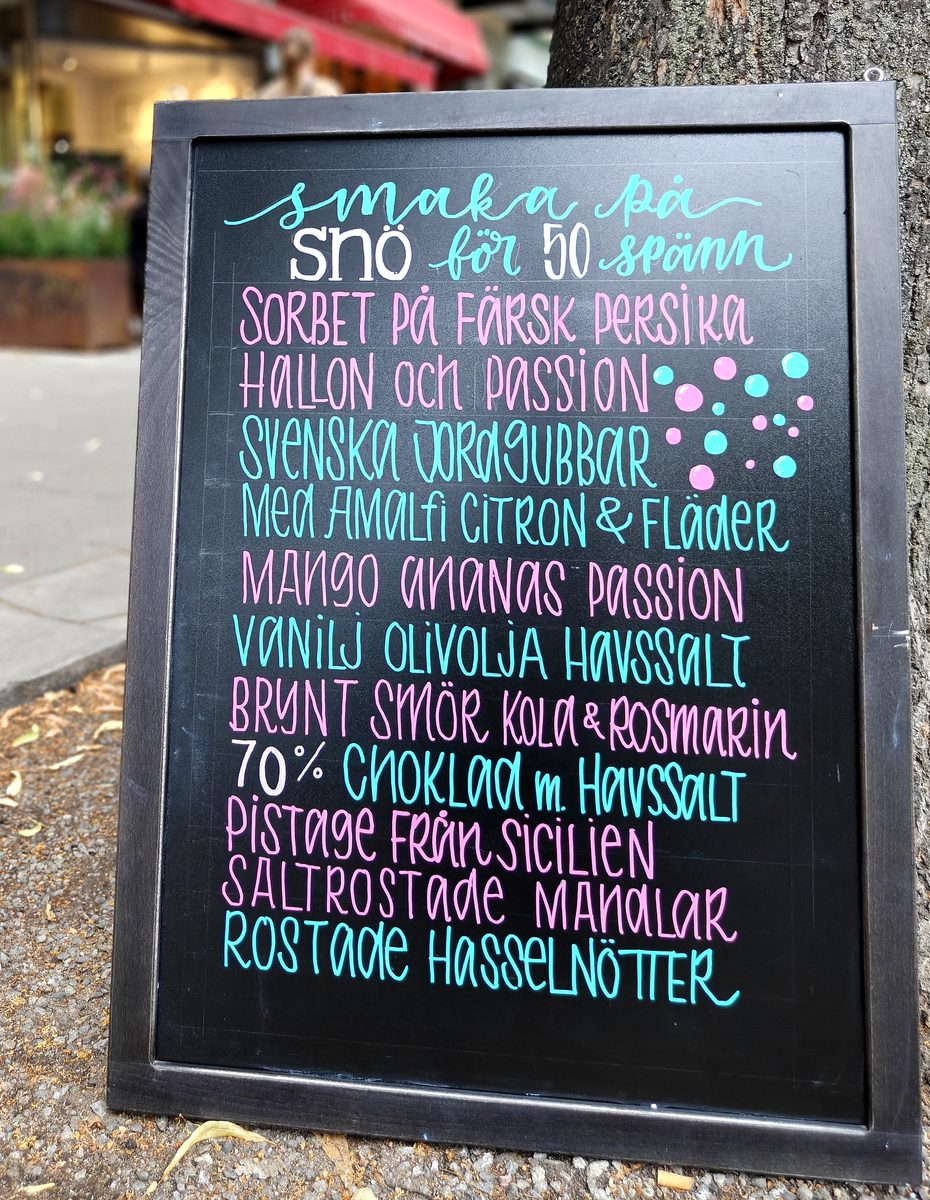 smaka på
SNÖ för 50 spänn
SORBET PÅ FÄRSK PERSIKA
HALLON OCH PASSION
SVENSKA JORDGUBBAR
MED AMALFI CITRON & FLÄDER
MANGO ANANAS PASSION
VANILJ OLIVOLJA HAVSSALT
BRYNT SMÖR KOLA & ROSMARIN
70% CHOKLAD m. HAVSSALT
PISTAGE FRÅN SICILIEN
SALTROSTADE MANDLAR
ROSTADE HASSELNÖTTER